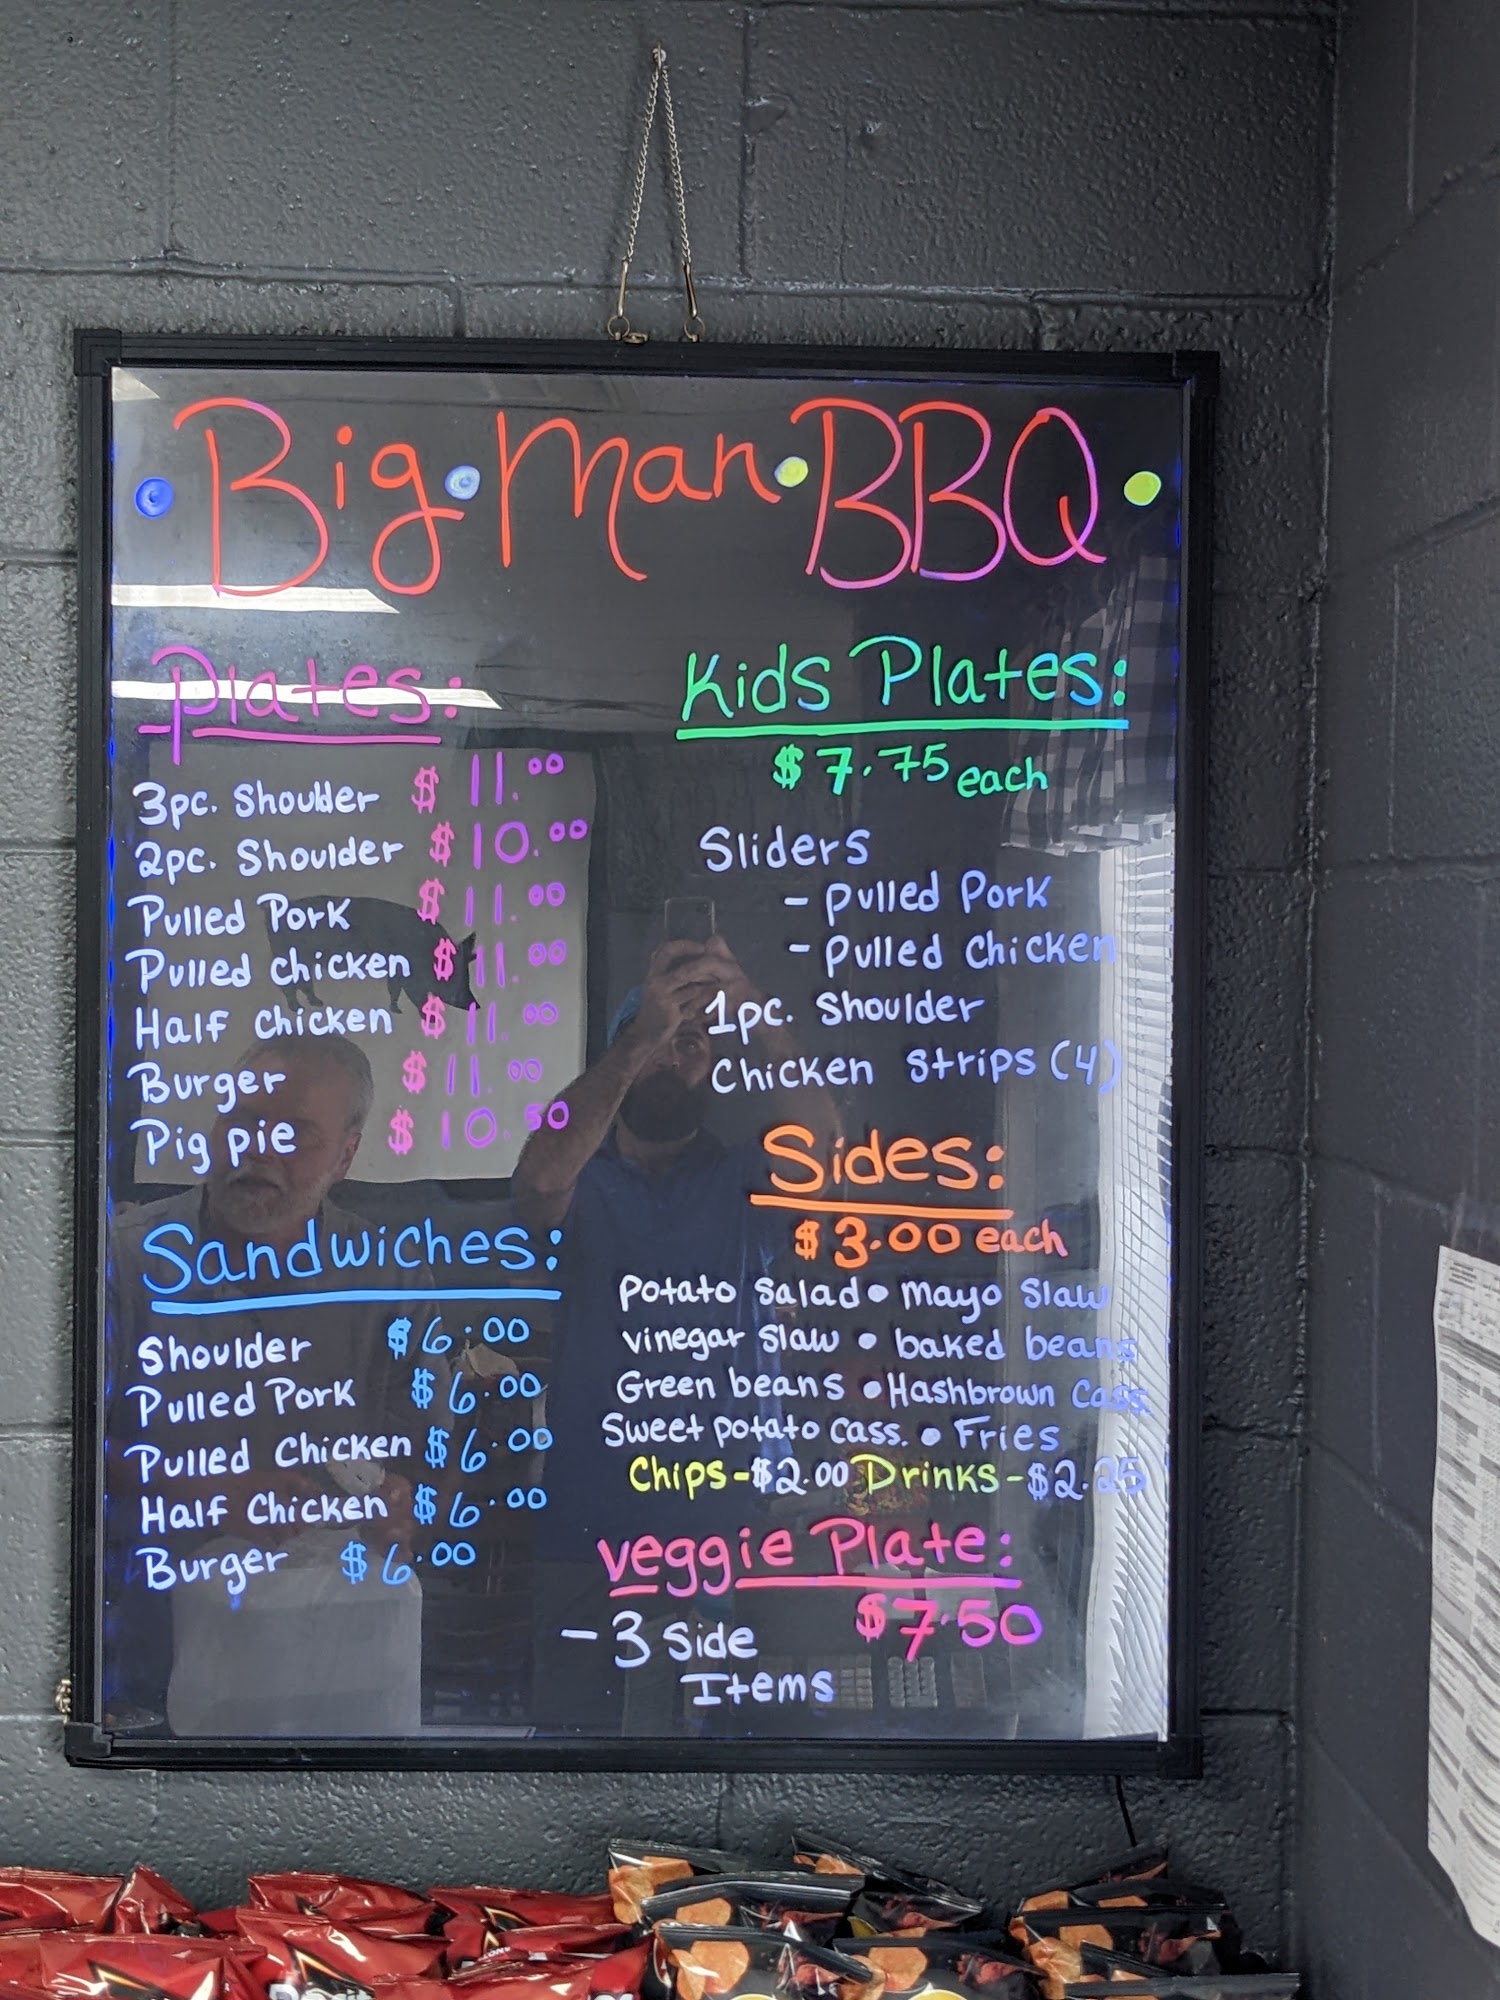 Big • Man • BBQ
Plates:
3pc. Shoulder $ 11.00
2pc. Shoulder $ 10.00
Pulled Pork $ 11.00
Pulled Chicken $ 11.00
Half Chicken $ 11.00
Burger $ 11.00
Pig pie $ 10.50
Sandwiches:
Shoulder $6.00
Pulled Pork $6.00
Pulled Chicken $6.00
Half Chicken $6.00
Burger $6.00
Kids Plates:
$7.75 each
Sliders
- Pulled Pork
- Pulled Chicken
1pc. Shoulder
Chicken Strips (4)
Sides:
$3.00 each
Potato Salad • Mayo Slaw
Vinegar Slaw • baked beans
Green beans • Hashbrown Cass.
Sweet Potato Cass. • Fries
Chips-$2.00 Drinks-$2.25
Veggie Plate:
$7.50
- 3 Side
Items